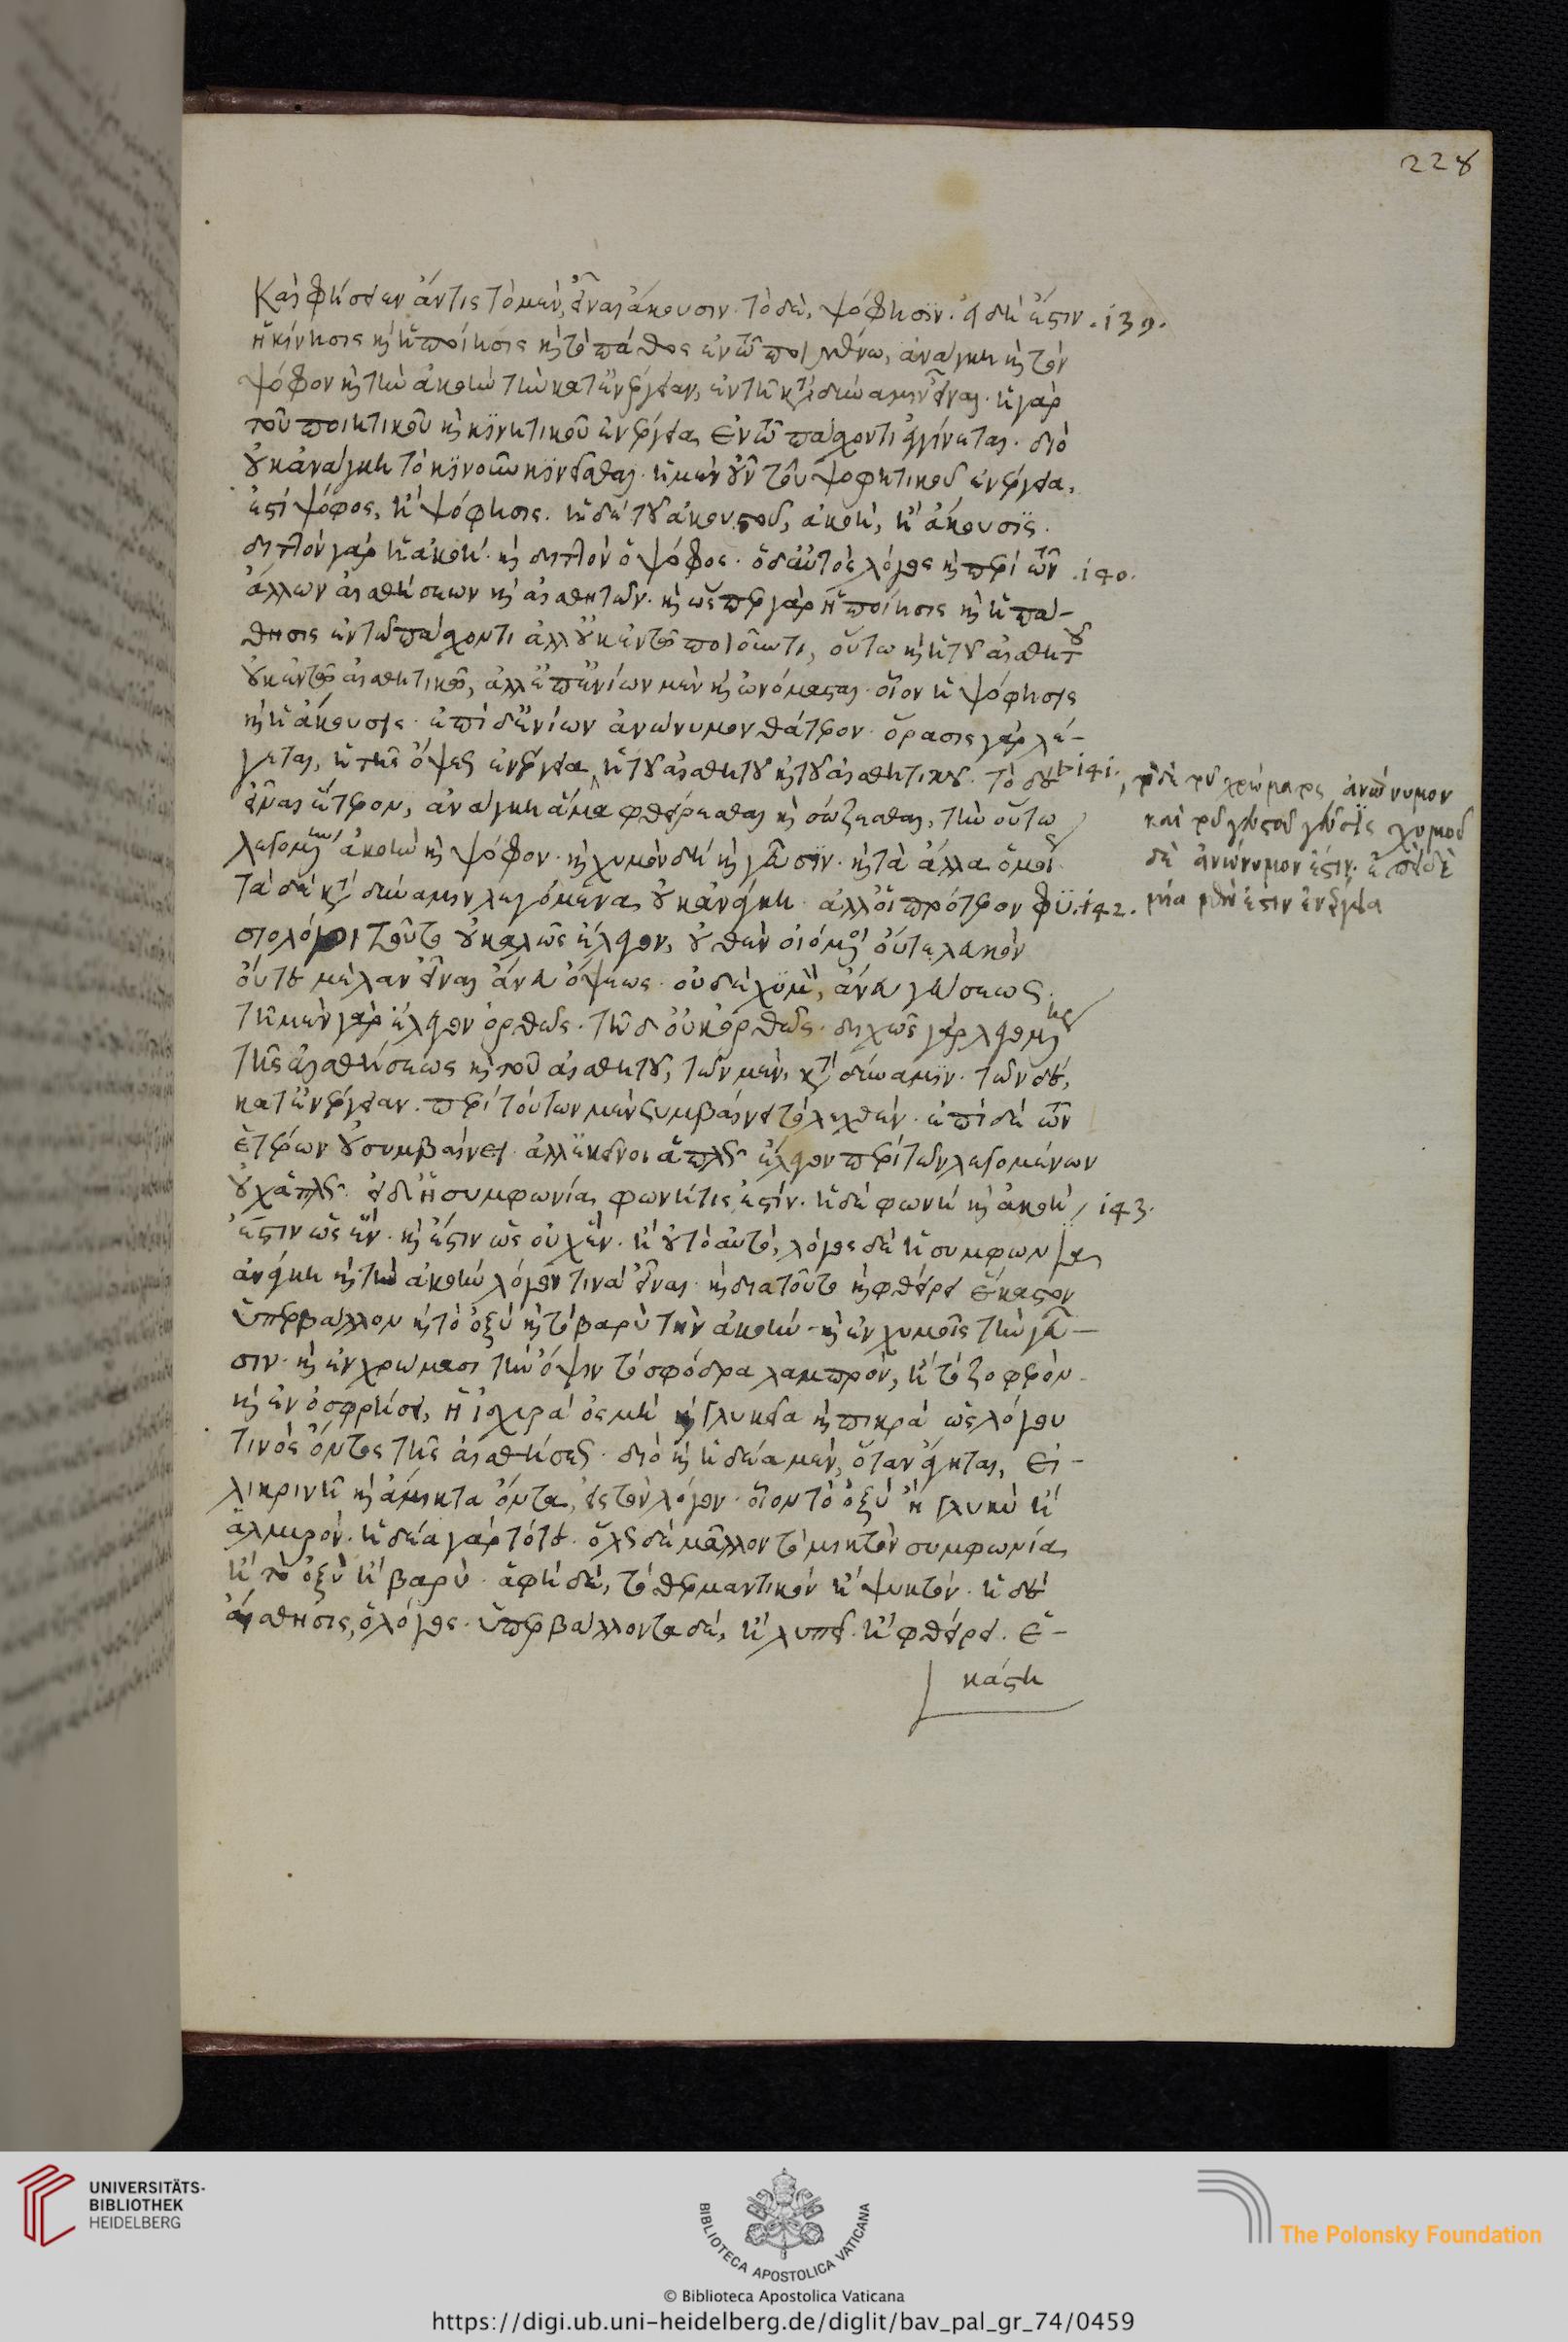 228
Καὶ φήσειεν ἄν τις τὸ μὲν, εἶναι ἄκουσιν· τὸ δὲ, ψόφησιν· εἰ δή ἐστιν .139.
ἡ κίνησις καὶ ἡ ποίησις καὶ τὸ πάθος ἐν τῷ ποιουμένῳ, ἀνάγκη καὶ τὸν
ψόφον καὶ τὴν ἀκοὴν τὴν κατ' ἐνέργειαν, ἐν τῇ κατὰ δύναμιν εἶναι· ἡ γὰρ
τοῦ ποιητικοῦ καὶ κινητικοῦ ἐνέργεια ἐν τῷ πάσχοντι ἐγγίνεται· διὸ
οὐκ ἀνάγκη τὸ κινοῦν κινεῖσθαι· ἡ μὲν οὖν τοῦ ψοφητικοῦ ἐνέργεια,
ἐστὶ ψόφος, ἢ ψόφησις. ἡ δὲ τοῦ ἀκουστοῦ, ἀκοή, ἢ ἄκουσις.
διττὸν γὰρ ἡ ἀκοή· καὶ διττὸν ὁ ψόφος· ὁ δ' αὐτὸς λόγος καὶ περὶ τῶν .140.
ἄλλων αἰσθήσεων καὶ αἰσθητῶν· καὶ ὥσπερ γὰρ ἡ ποίησις καὶ ἡ πά-
θησις ἐν τῷ πάσχοντι ἀλλ' οὐκ ἐν τῷ ποιοῦντι, οὕτω καὶ ἡ τοῦ αἰσθητοῦ
οὐκ ἐν τῷ αἰσθητικῷ, ἀλλ' ἐπ' ἐνίων μὲν καὶ ὠνόμασται· οἷον ἡ ψόφησις
καὶ ἡ ἄκουσις· ἐπὶ δ' ἐνίων ἀνώνυμον θάτερον· ὅρασις γὰρ λέ-
γεται, ἡ τῆς ὄψεως ἐνέργεια ἡ τοῦ αἰσθητοῦ καὶ τοῦ αἰσθητικοῦ· τὸ δὲ .141.
εἶναι ἕτερον, ἀνάγκη ἅμα φθείρεσθαι καὶ σώζεσθαι, τὴν οὕτω
λεγομένην ἀκοὴν καὶ ψόφον· καὶ χυμὸν δὴ καὶ γεῦσιν· καὶ τὰ ἄλλα ὁμοίως
τὰ δὲ κατὰ δύναμιν λεγόμενα οὐκ ἀνάγκη· ἀλλ' οἱ πρότερον φυ .142.
σιολόγοι τοῦτο οὐ καλῶς ἔλεγον, οὐθὲν οἰόμενοι οὔτε λευκὸν
οὔτε μέλαν εἶναι ἄνευ ὄψεως· οὐδὲ χυμὸν, ἄνευ γεύσεως.
τῇ μὲν γὰρ ἔλεγον ὀρθῶς· τῇ δ' οὐκ ὀρθῶς· διχῶς γὰρ λεγομένης
τῆς αἰσθήσεως καὶ τοῦ αἰσθητοῦ, τῶν μὲν, κατὰ δύναμιν· τῶν δὲ,
κατ' ἐνέργειαν· περὶ τούτων μὲν συμβαίνει τὸ λεχθέν· ἐπὶ δὲ τῶν
ἑτέρων οὐ συμβαίνει· ἀλλ' ἐκεῖνοι ἁπλῶς ἔλεγον περὶ τῶν λεγομένων
οὐχ ἁπλῶς· εἰ δὴ ἡ συμφωνία φωνή τίς ἐστίν· ἡ δὲ φωνὴ καὶ ἀκοὴ 143.
ἔστιν ὡς ἕν· καὶ ἔστιν ὡς οὐχ ἕν· ἢ οὐ τὸ αὐτὸ, λόγος δὲ ἡ συμφωνία
ἀνάγκη καὶ τὴν ἀκοὴν λόγον τινὰ εἶναι· καὶ διὰ τοῦτο καὶ φθείρει ἕκαστον
ὑπερβάλλον καὶ τὸ ὀξὺ καὶ τὸ βαρὺ τὴν ἀκοήν· καὶ ἐν χυμοῖς τὴν γεῦ-
σιν· καὶ ἐν χρώμασι τὴν ὄψιν τὸ σφόδρα λαμπρὸν, ἢ τὸ ζοφερόν.
καὶ ἐν ὀσφρήσει, ἡ ἰσχυρὰ ὀσμὴ καὶ γλυκεῖα καὶ πικρὰ ὡς λόγου
τινὸς ὄντος τῆς αἰσθήσεως· διὸ καὶ ἡδέα μὲν, ὅταν ἄγηται, εἰ-
λικρινῆ καὶ ἄμικτα ὄντα, εἰς τὸν λόγον· οἷον τὸ ὀξὺ ἢ γλυκὺ ἢ
ἁλμυρόν· ἡδέα γὰρ τότε· ὅλως δὲ μᾶλλον τὸ μικτὸν συμφωνία
ἢ τὸ ὀξὺ ἢ βαρύ· ἁφῇ δὲ, τὸ θερμαντικὸν ἢ ψυκτόν· ἡ δὲ
αἴσθησις, ὁ λόγος· ὑπερβάλλοντα δὲ, ἢ λυπεῖ· ἢ φθείρει· ἑ-
κάστη
, ἡ δὲ τοῦ χρώματος ἀνώνυμον
καὶ τοῦ γευστοῦ γεῦσις χυμοῦ
δὲ ἀνώνυμον ἐστιν· ἐπεὶ δὲ
μία μέν ἐστιν ἐνέργεια
UNIVERSITÄTS-
BIBLIOTHEK
HEIDELBERG
BIBLIOTECA APOSTOLICA VATICANA
The Polonsky Foundation
© Biblioteca Apostolica Vaticana
https://digi.ub.uni-heidelberg.de/diglit/bav_pal_gr_74/0459